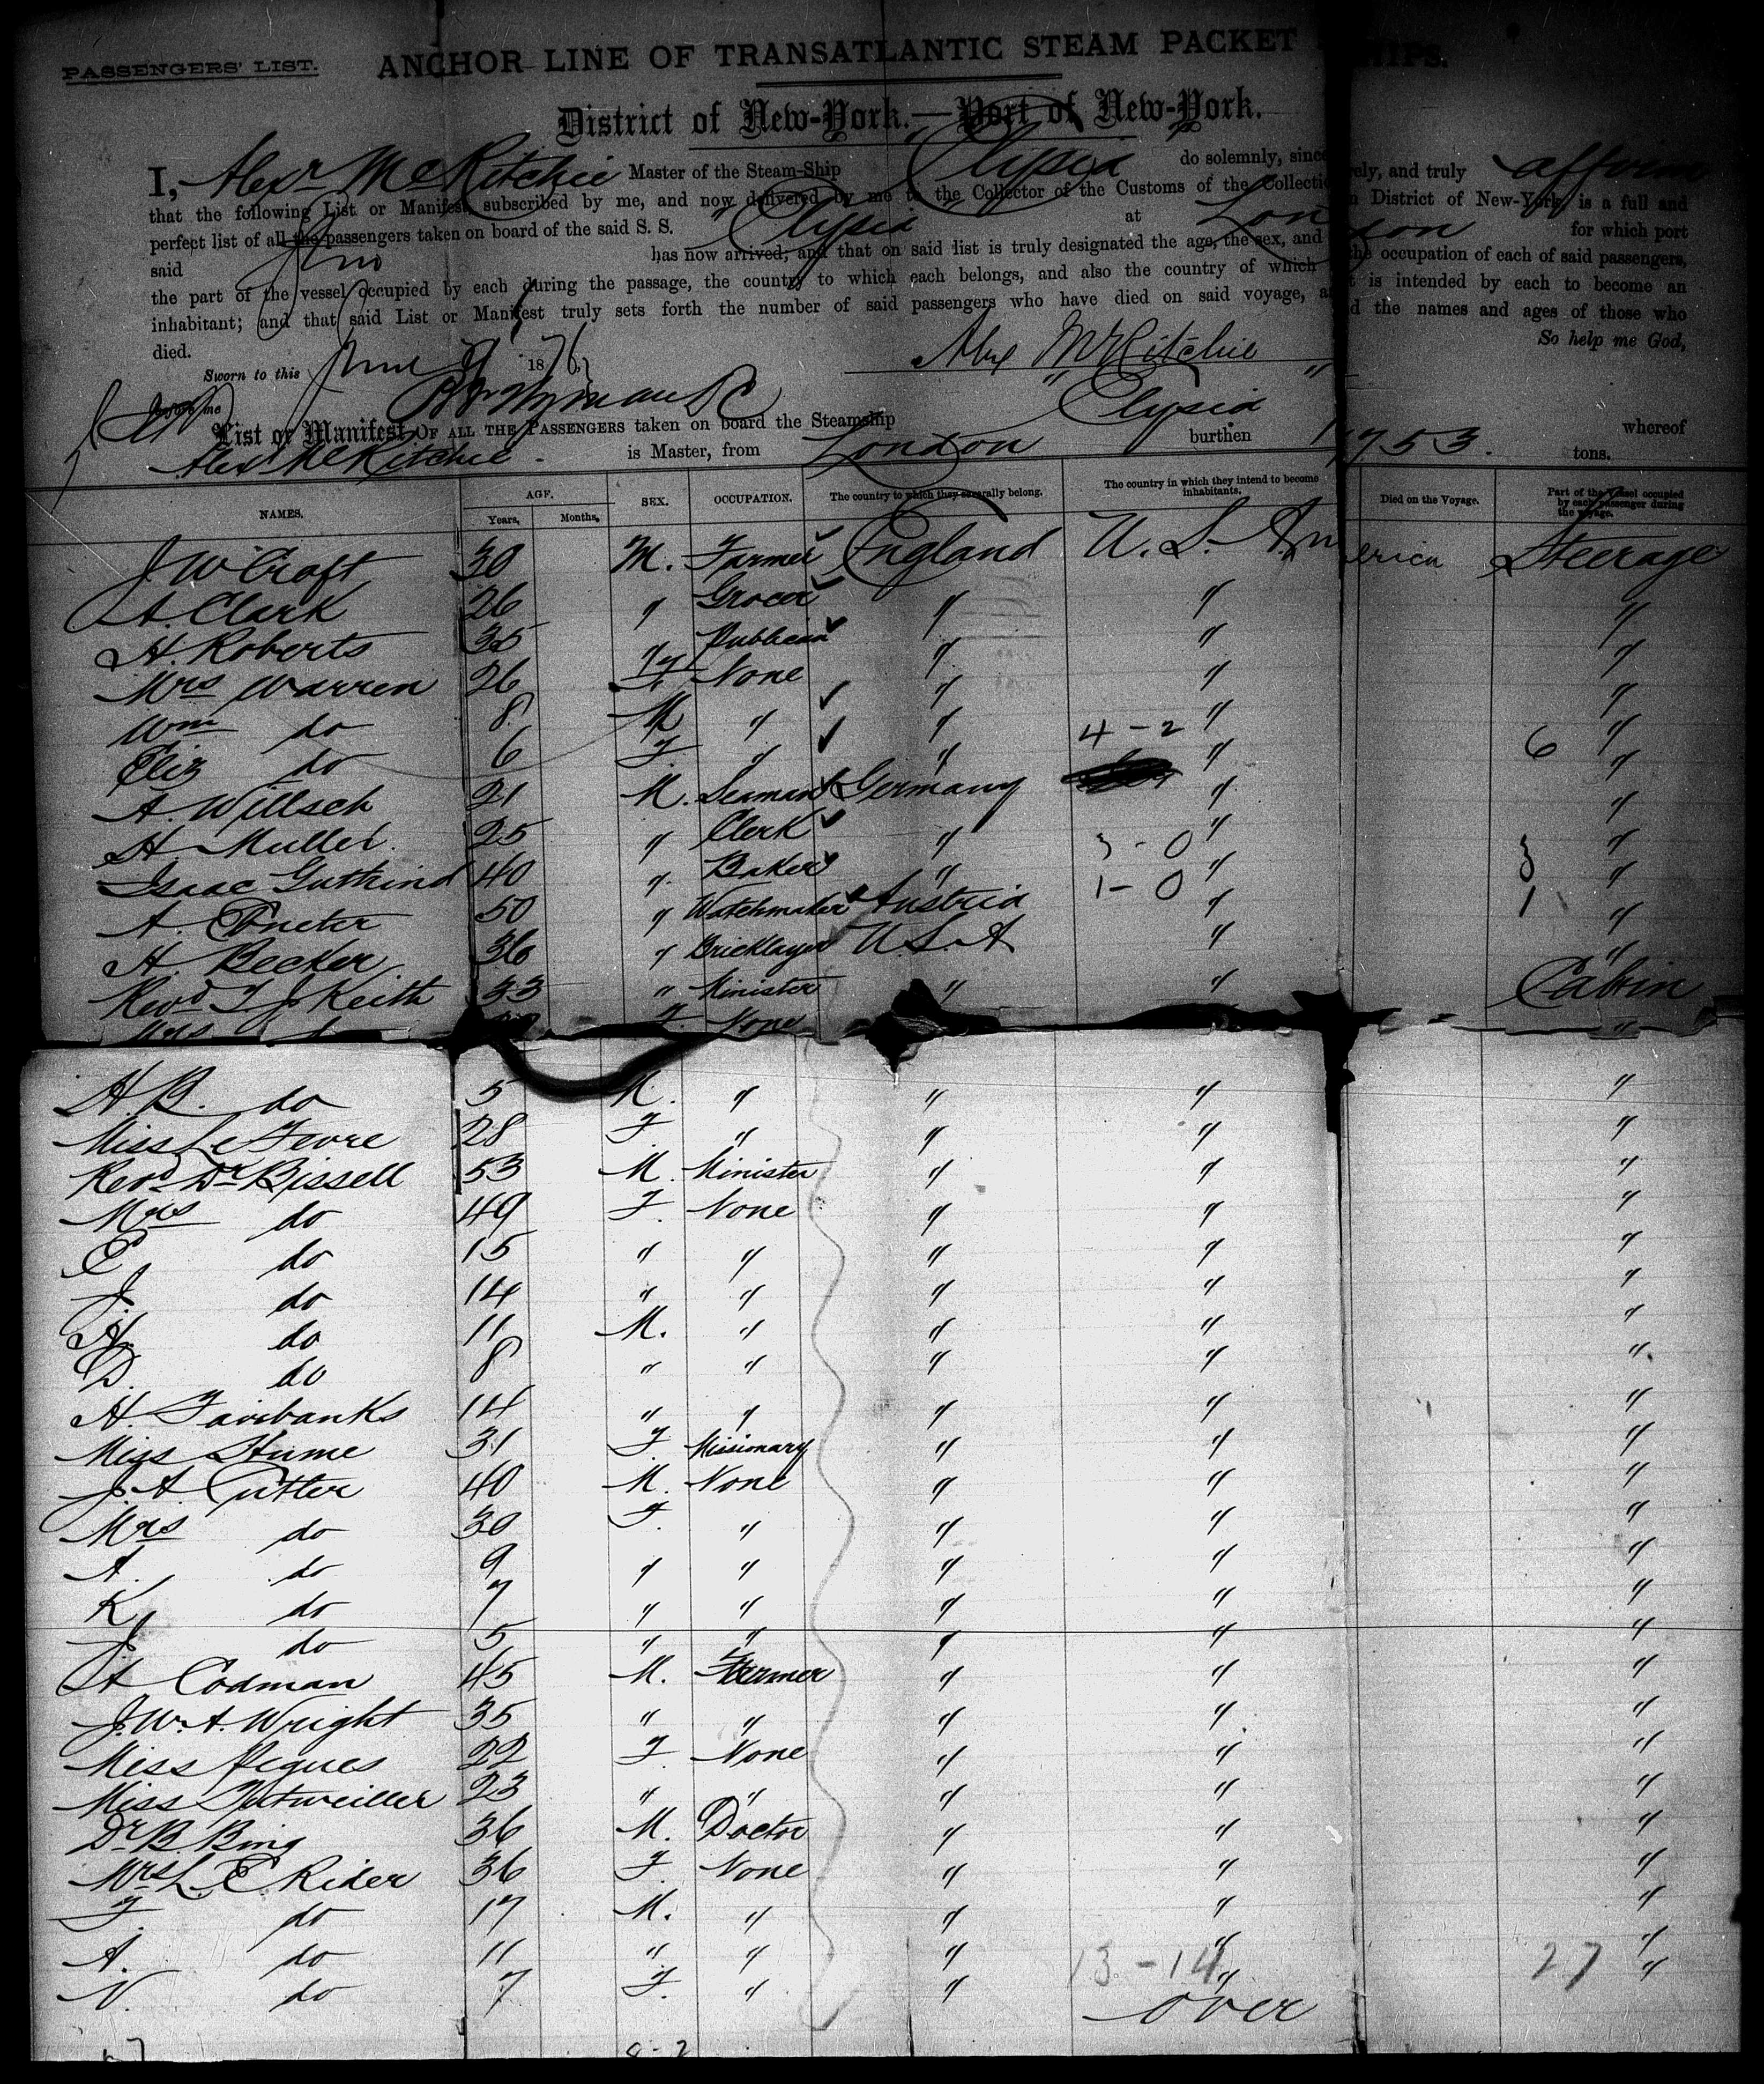 PASSENGERS' LIST. ANCHOR LINE OF TRANSATLANTIC STEAM PACKET SHIPS.
District of New-York.—Port of New-York.
I, Alexr McRitchie Master of the Steam-Ship Elysia do solemnly, sincerely, and truly affirm
that the following List or Manifest, subscribed by me, and now delivered by me to the Collector of the Customs of the Collection District of New-York, is a full and
perfect list of all the passengers taken on board of the said S. S. Elysia at London for which port
said has now arrived; and that on said list is truly designated the age, the sex, and the occupation of each of said passengers,
the part of the vessel occupied by each during the passage, the country to which each belongs, and also the country of which it is intended by each to become an
inhabitant; and that said List or Manifest truly sets forth the number of said passengers who have died on said voyage, and the names and ages of those who
died. So help me God,
Sworn to this June 9 1876 Alex McRitchie
before me
List or Manifest OF ALL THE PASSENGERS taken on board the Steamship Elysia whereof
Alexr McRitchie is Master, from London burthen 1753 tons.
NAMES. AGE. Years, Months, SEX. OCCUPATION. The country to which they severally belong. The country in which they intend to become inhabitants. Died on the Voyage. Part of the vessel occupied by each passenger during the voyage.
J W Croft 30 M. Farmer England U. S. America Steerage
A. Clark 26 " Grocer " " "
H. Roberts 35 " Publican " " "
Mrs Warren 26 F. None " " "
Wm do 8 M " " " "
Eliz do 6 F. " " 4-2 " 6 "
A. Willsch 21 M. Seaman Germany " "
H Muller. 25 " Clerk " " "
Isaac Guthind 40 " Baker " 3-0 " 3 "
A. 50 " Watchmaker Austria 1-0 " 1 "
H. Becker 36 " Bricklayer U.S.A " "
Revd T J Keith 33 " Minister " " Cabin
Mrs do F. None "
H. B. do 5 M. " " " "
Miss Le Fevre 28 F. " " " "
Revd Dr Bissell 53 M. Minister " " "
Mrs do 49 F. None " " "
E. do 15 " " " " "
J. do 14 " " " " "
H. do 11 M. " " " "
D. do 8 " " " " "
H. Fairbanks 14 " " " " "
Miss Hume 31 F Missionary " " "
J. A. Cutter 40 M. None " " "
Mrs do 30 F. " " " "
A. do 9 " " " " "
K. do 7 " " " " "
J. do 5 " " " " "
A Codman 45 M. Farmer " " "
J. W. A. Wright 35 " " " " "
Miss Pegues 22 F None " " "
Miss Tutweiller 23 " " " " "
Dr B. Bing 36 M. Doctor " " "
Mrs L. E Rider 36 F. None " " "
F. do 17 M. " " " "
A. do 11 " " " " "
V. do 7 F. " " 13-14 " 27 "
over